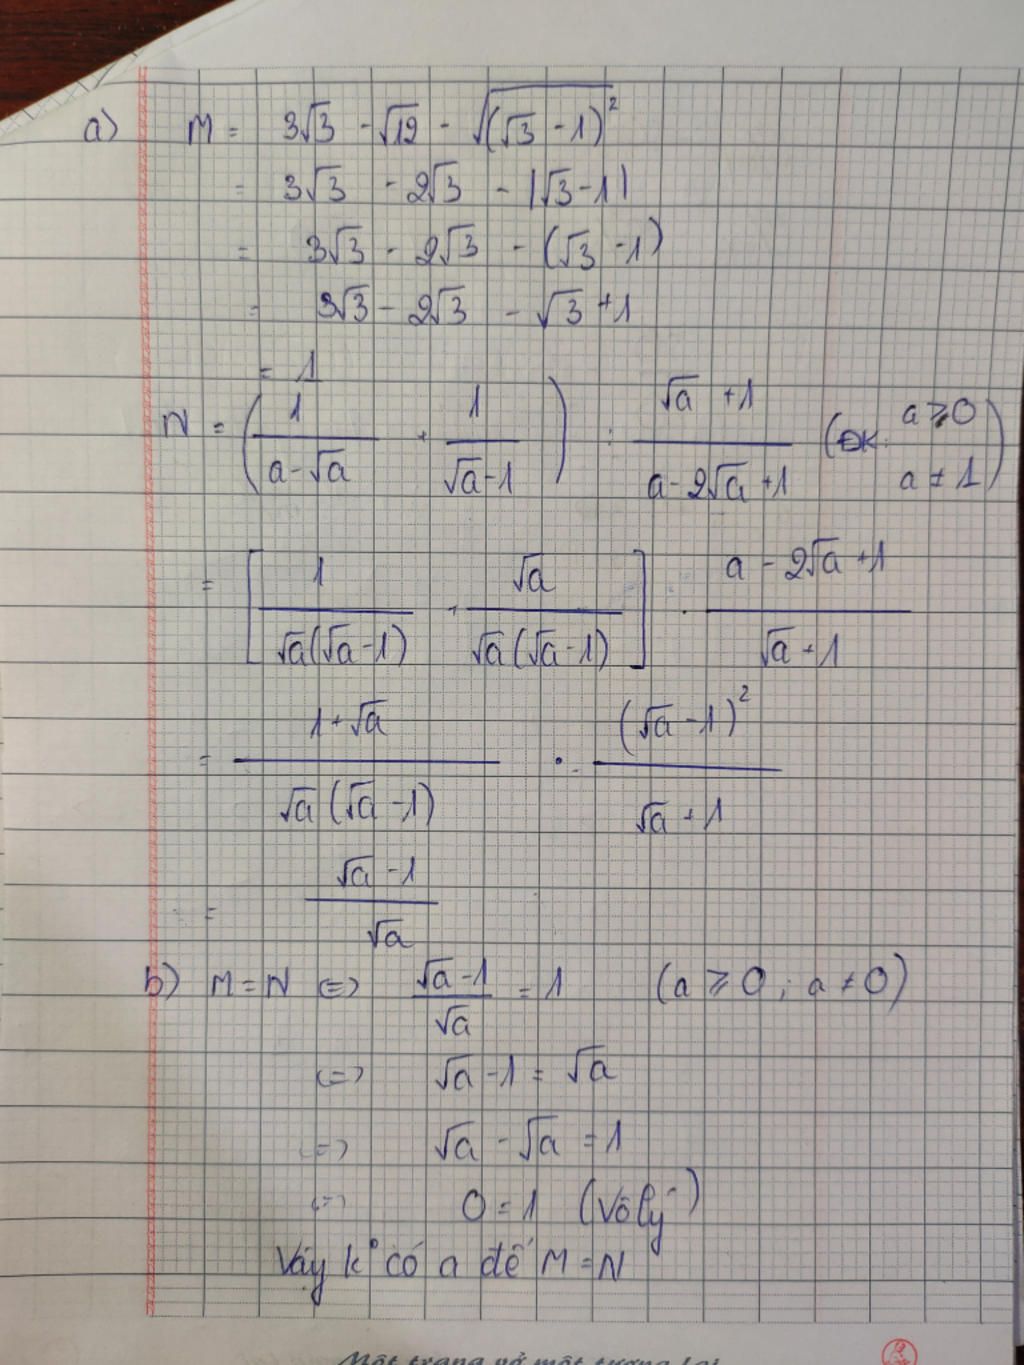 a) M = 3√3 - √12 - √(√3 - 1)²
= 3√3 - 2√3 - |√3 - 1|
= 3√3 - 2√3 - (√3 - 1)
= 3√3 - 2√3 - √3 + 1
= 1
N = (1/(a - √a) + 1/(√a - 1)) : (√a + 1)/(a - 2√a + 1) (ĐK: a ≥ 0 a ≠ 1)
= [1/(√a(√a - 1)) + √a/(√a(√a - 1))] . (a - 2√a + 1)/(√a + 1)
= (1 + √a)/(√a(√a - 1)) . (√a - 1)²/(√a + 1)
= (√a - 1)/√a
b) M = N <=> (√a - 1)/√a = 1 (a ≥ 0 ; a ≠ 0)
<=> √a - 1 = √a
<=> √a - √a = 1
<=> 0 = 1 (Vô lý)
Vậy k° có a để M = N
Một trang vở một tương lai